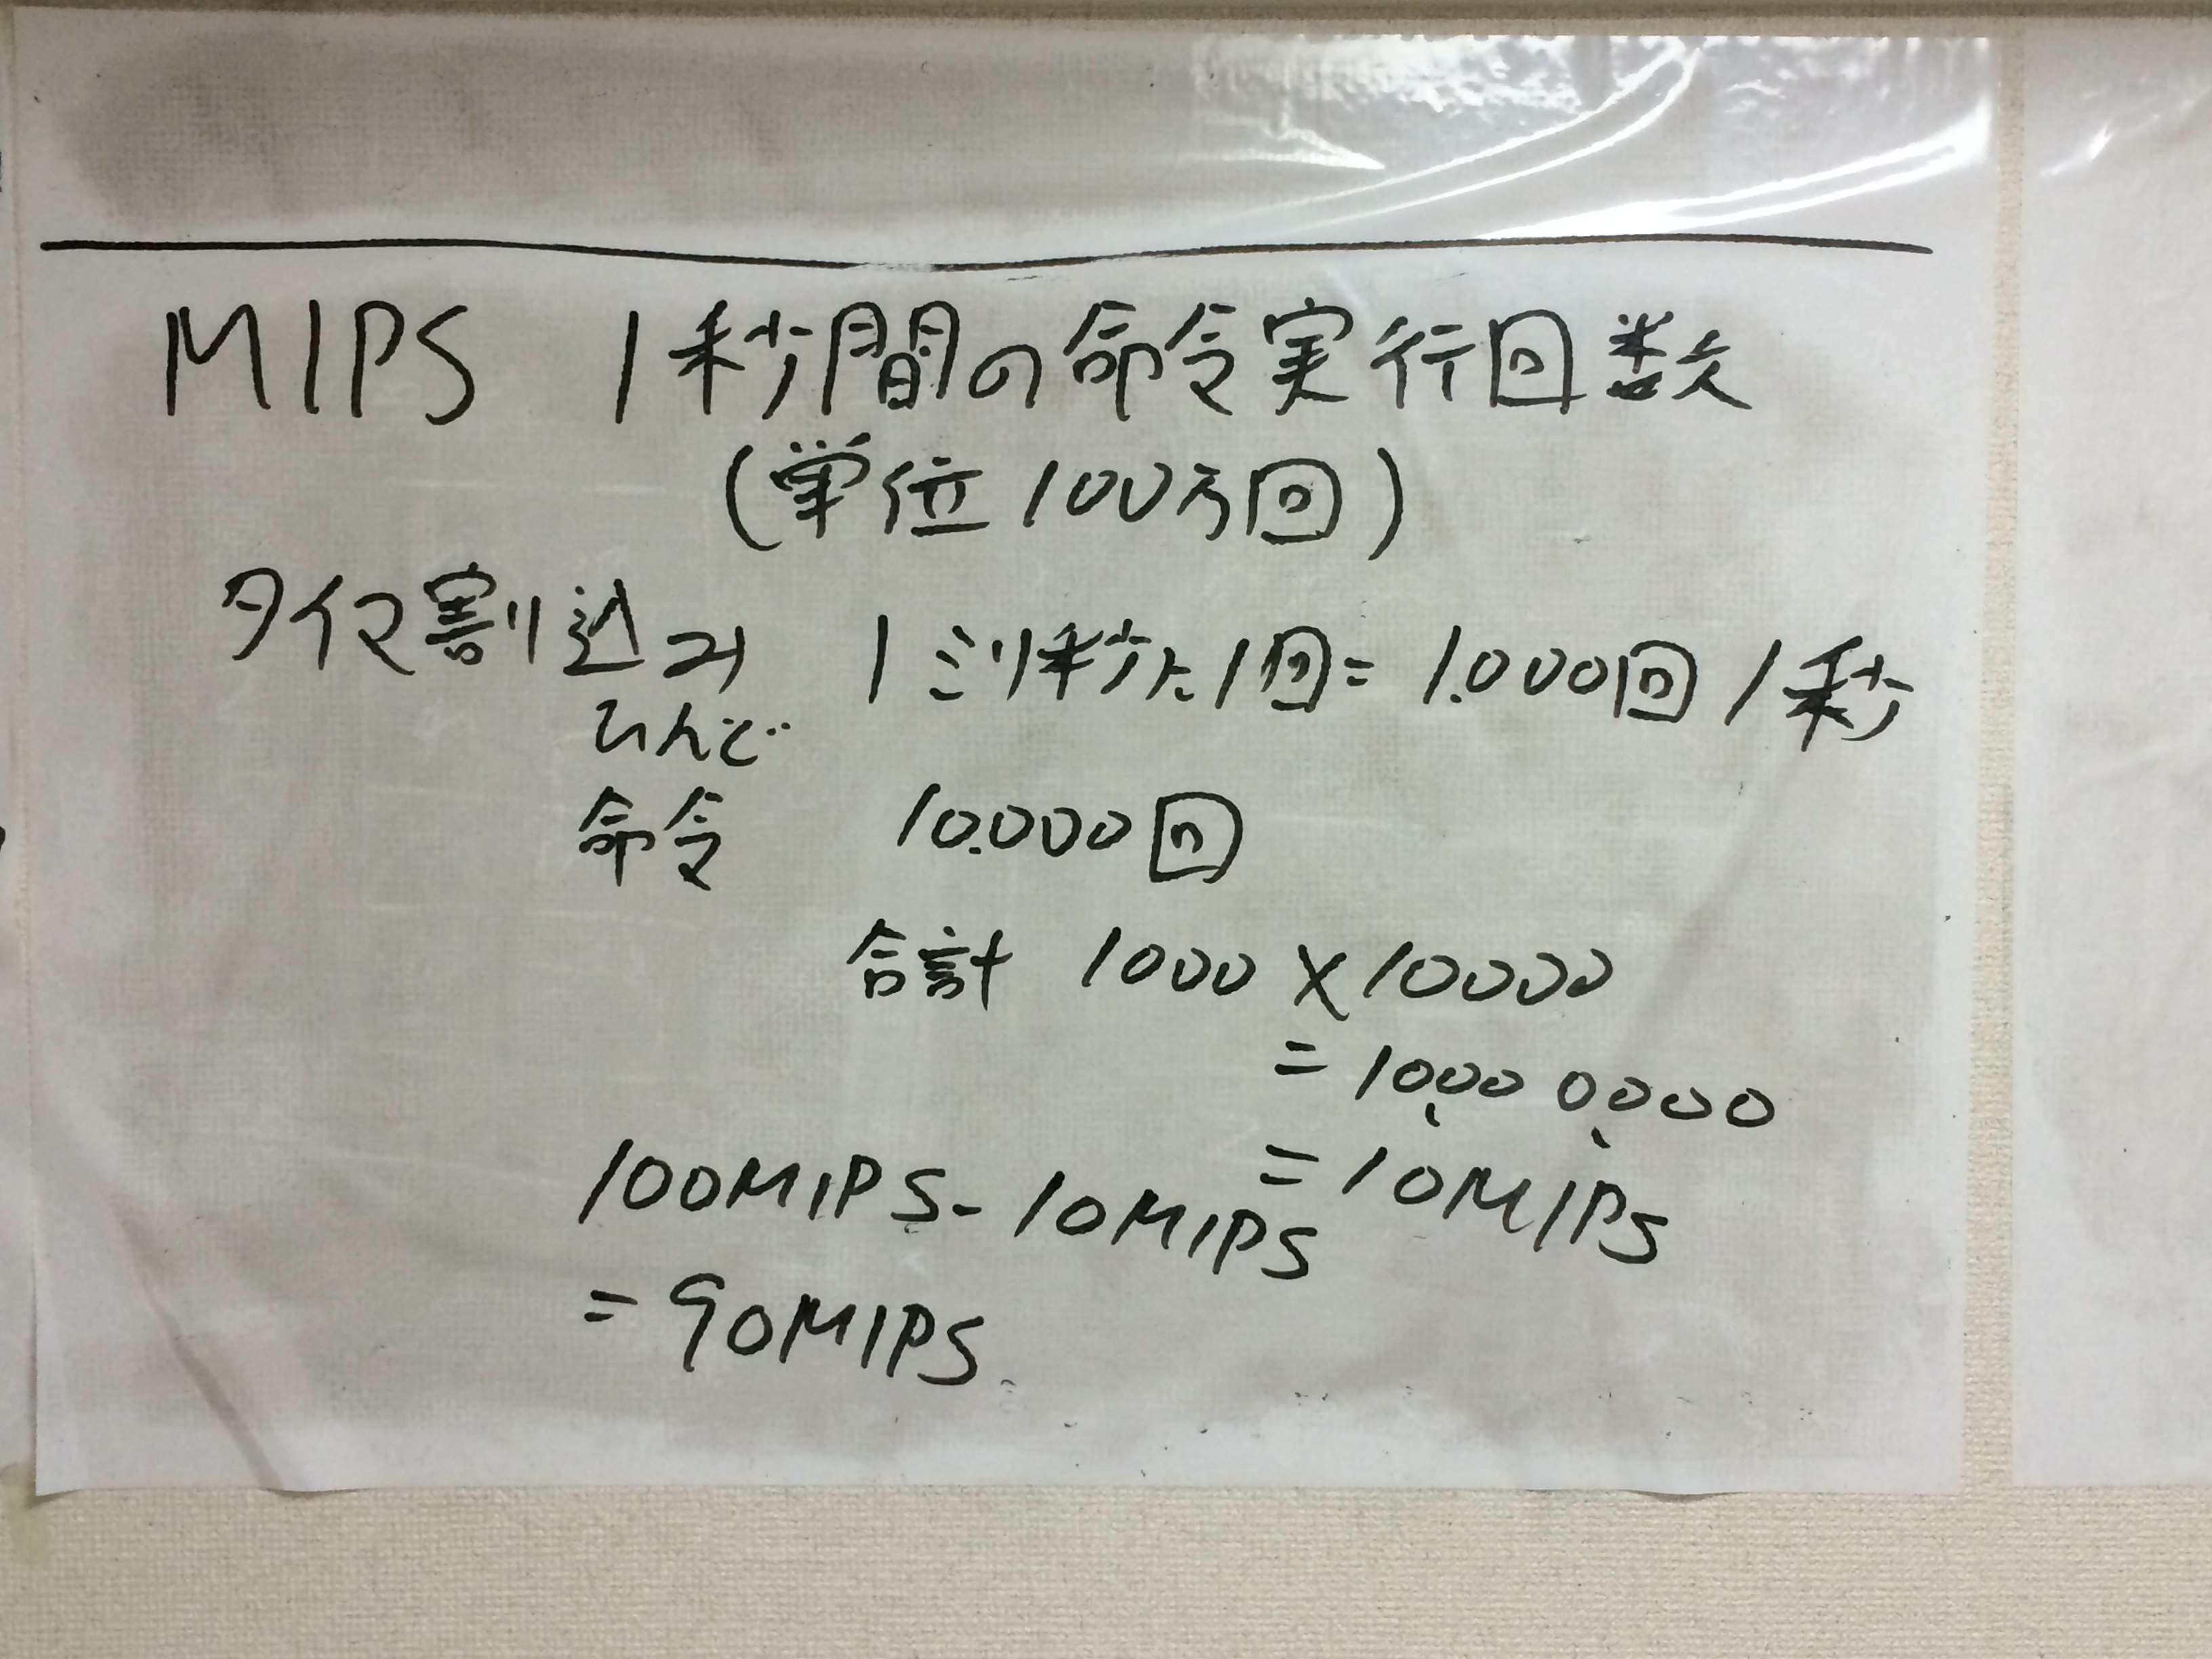 MIPS 1秒間の命令実行回数
(単位100万回)
タイマ割込み 1ミリ秒に1回=1,000回/秒
ひんど
命令 10,000回
合計 1000×10000
=10,000,000
=10MIPS
100MIPS-10MIPS
=90MIPS